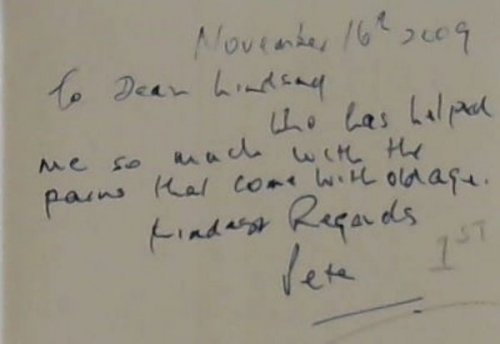 November 16th 2009
To Dear Lindsay
who has helped
me so much with the
pains that come with oldage.
Kindest Regards
Pete
1ST